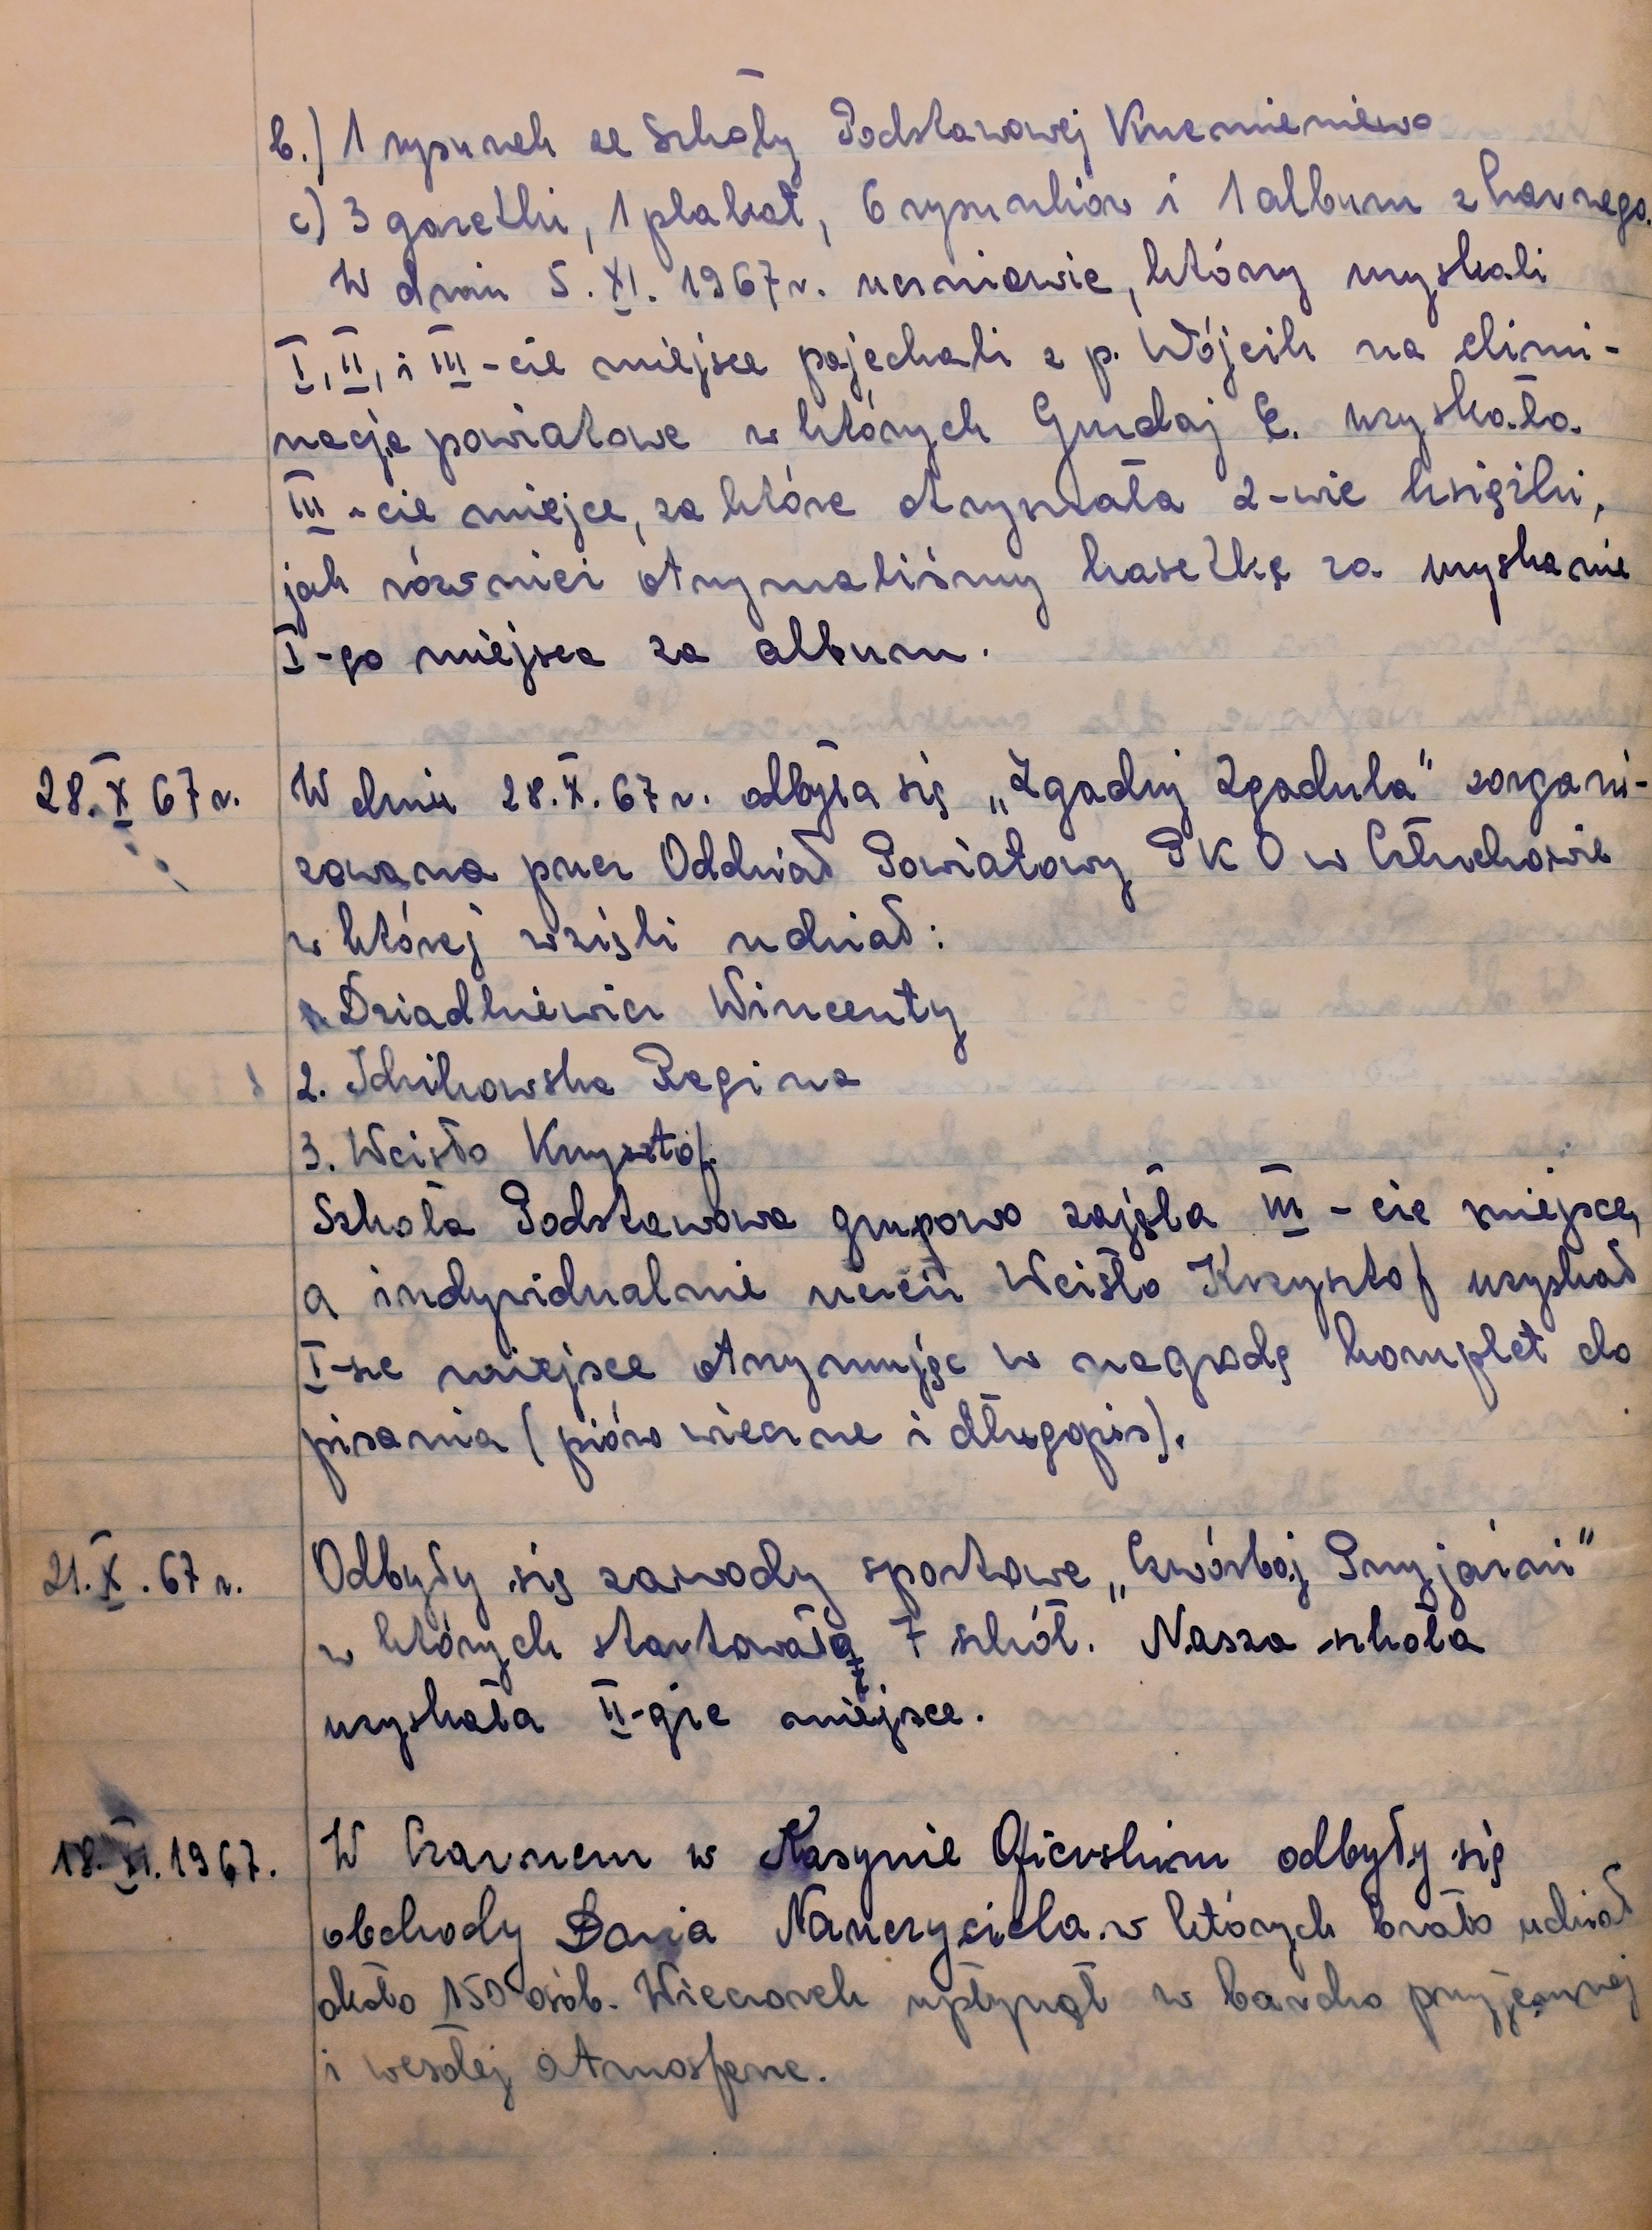 b.) 1 rysunek ze Szkoły Podstawowej Krzemieniewo
c) 3 gazetki, 1 plakat, 6 rysunków i 1 album z Czarnego.
W dniu 5. XI. 1967 r. uczniowie, którzy uzyskali
I, II, i III-cie miejsce pojechali z p. Wójcik na elimi-
nacje powiatowe w których Gurdaj E. uzyskała
III-cie miejce, za które otrzymała 2-wie książki,
jak również otrzymaliśmy kasetkę za uzyskanie
I-go miejsca za album.
28. X 67 r. W dniu 28. X. 67 r. odbyła się „Zgaduj Zgadula" zorgani-
zowana przez Oddział Powiatowy PKO w Człuchowie
w której wzięli udział:
1. Dziadkiewicz Wincenty
2. Idzikowska Regina
3. Wcisło Krzysztof.
Szkoła Podstawowa grupowo zajęła III-cie miejsce,
a indywidualnie uczeń Wcisło Krzysztof uzyskał
I-sze miejsce otrzymując w nagrodę komplet do
pisania (pióro wieczne i długopis).
21. X. 67 r. Odbyły się zawody sportowe „Czwórbój Przyjaźni"
w których startowało 7 szkół. Nasza szkoła
uzyskała II-gie miejsce.
18. XI. 1967. W Czarnem w Kasynie Oficerskim odbyły się
obchody Dnia Nauczyciela w których brało udział
około 150 osób. Wieczorek upłynął w bardzo przyjemnej
i wesołej atmosferze.